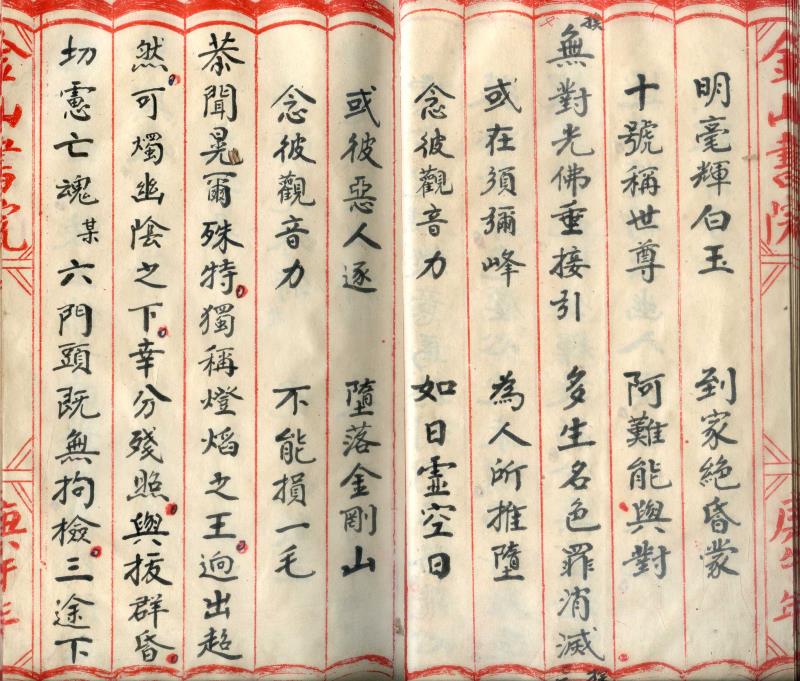 金山書院 庚午年
明毫輝白玉 到家絶昏蒙
十號稱世尊 阿難能與對
無對光佛垂接引 多生名色罪消滅
或在須彌峰 為人所推墮
念彼觀音力 如日霊空日
或彼惡人逐 墮落金剛山
念彼觀音力 不能損一毛
恭聞晃爾殊特獨稱燈熖之王逈出超
然可燭幽陰之下幸分殘照與拔群昏
切憲亡魂某六門頭既無拘檢三途下
金山書院 庚午年